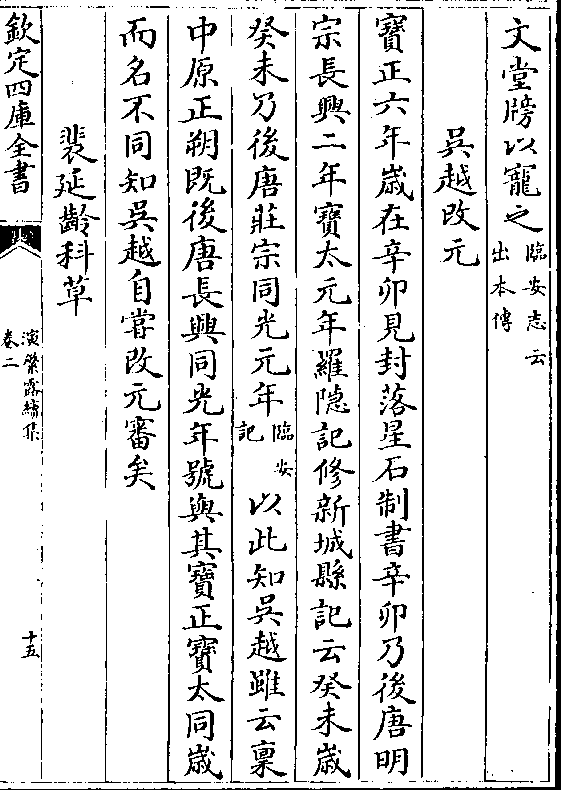 文堂牓以寵之臨安志云出本傳
吳越改元
寶正六年歲在辛卯見封落星石制書辛卯乃後唐明
宗長興二年寶太元年羅隱記修新城縣記云癸未歲
癸未乃後唐莊宗同光元年臨安記以此知吳越雖云稟
中原正朔既後唐長興同光年號與其寶正寶太同歲
而名不同知吳越自嘗改元審矣
裴延齡科草
欽定四庫全書
演繁露續集
卷二
十五